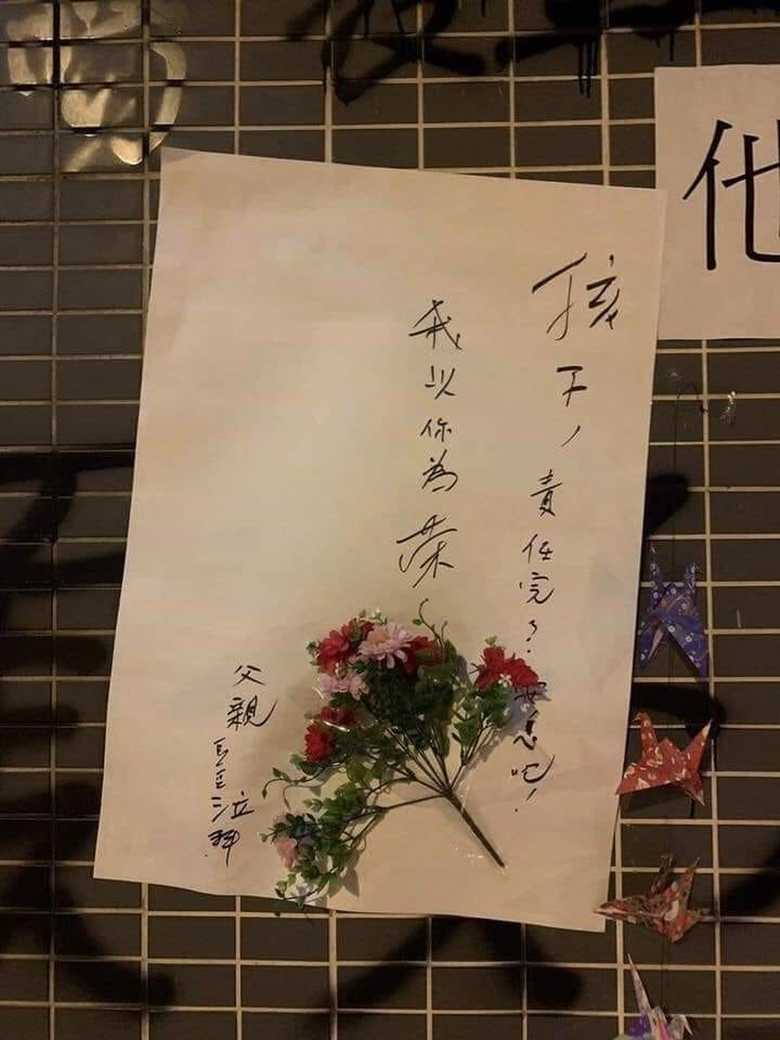 他
孩子，責任完了．安息吧！
我以你為榮
父親 泣拜